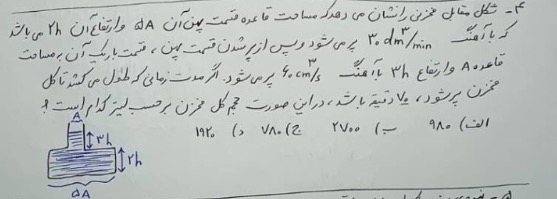 ۴- شکل مقابل مخزنی را نشان می دهد که مساحت قاعده قسمت پهن آن 5A و ارتفاع آن 2h می باشد
که با آهنگ 30 dm³/min پر می شود و پس از پر شدن قسمت پهن، قسمت باریک آن به مساحت
قاعده A و ارتفاع 3h با آهنگ 60 cm³/s پر می شود. اگر مدت زمانی که طول می کشد تا کل
مخزن پر شود، ۷۵ دقیقه باشد، در این صورت حجم کل مخزن بر حسب لیتر کدام است؟
الف) ۹۸۰ ب) ۲۷۰۰ ج) ۷۸۰ د) ۱۹۲۰
A
3h
2h
5A